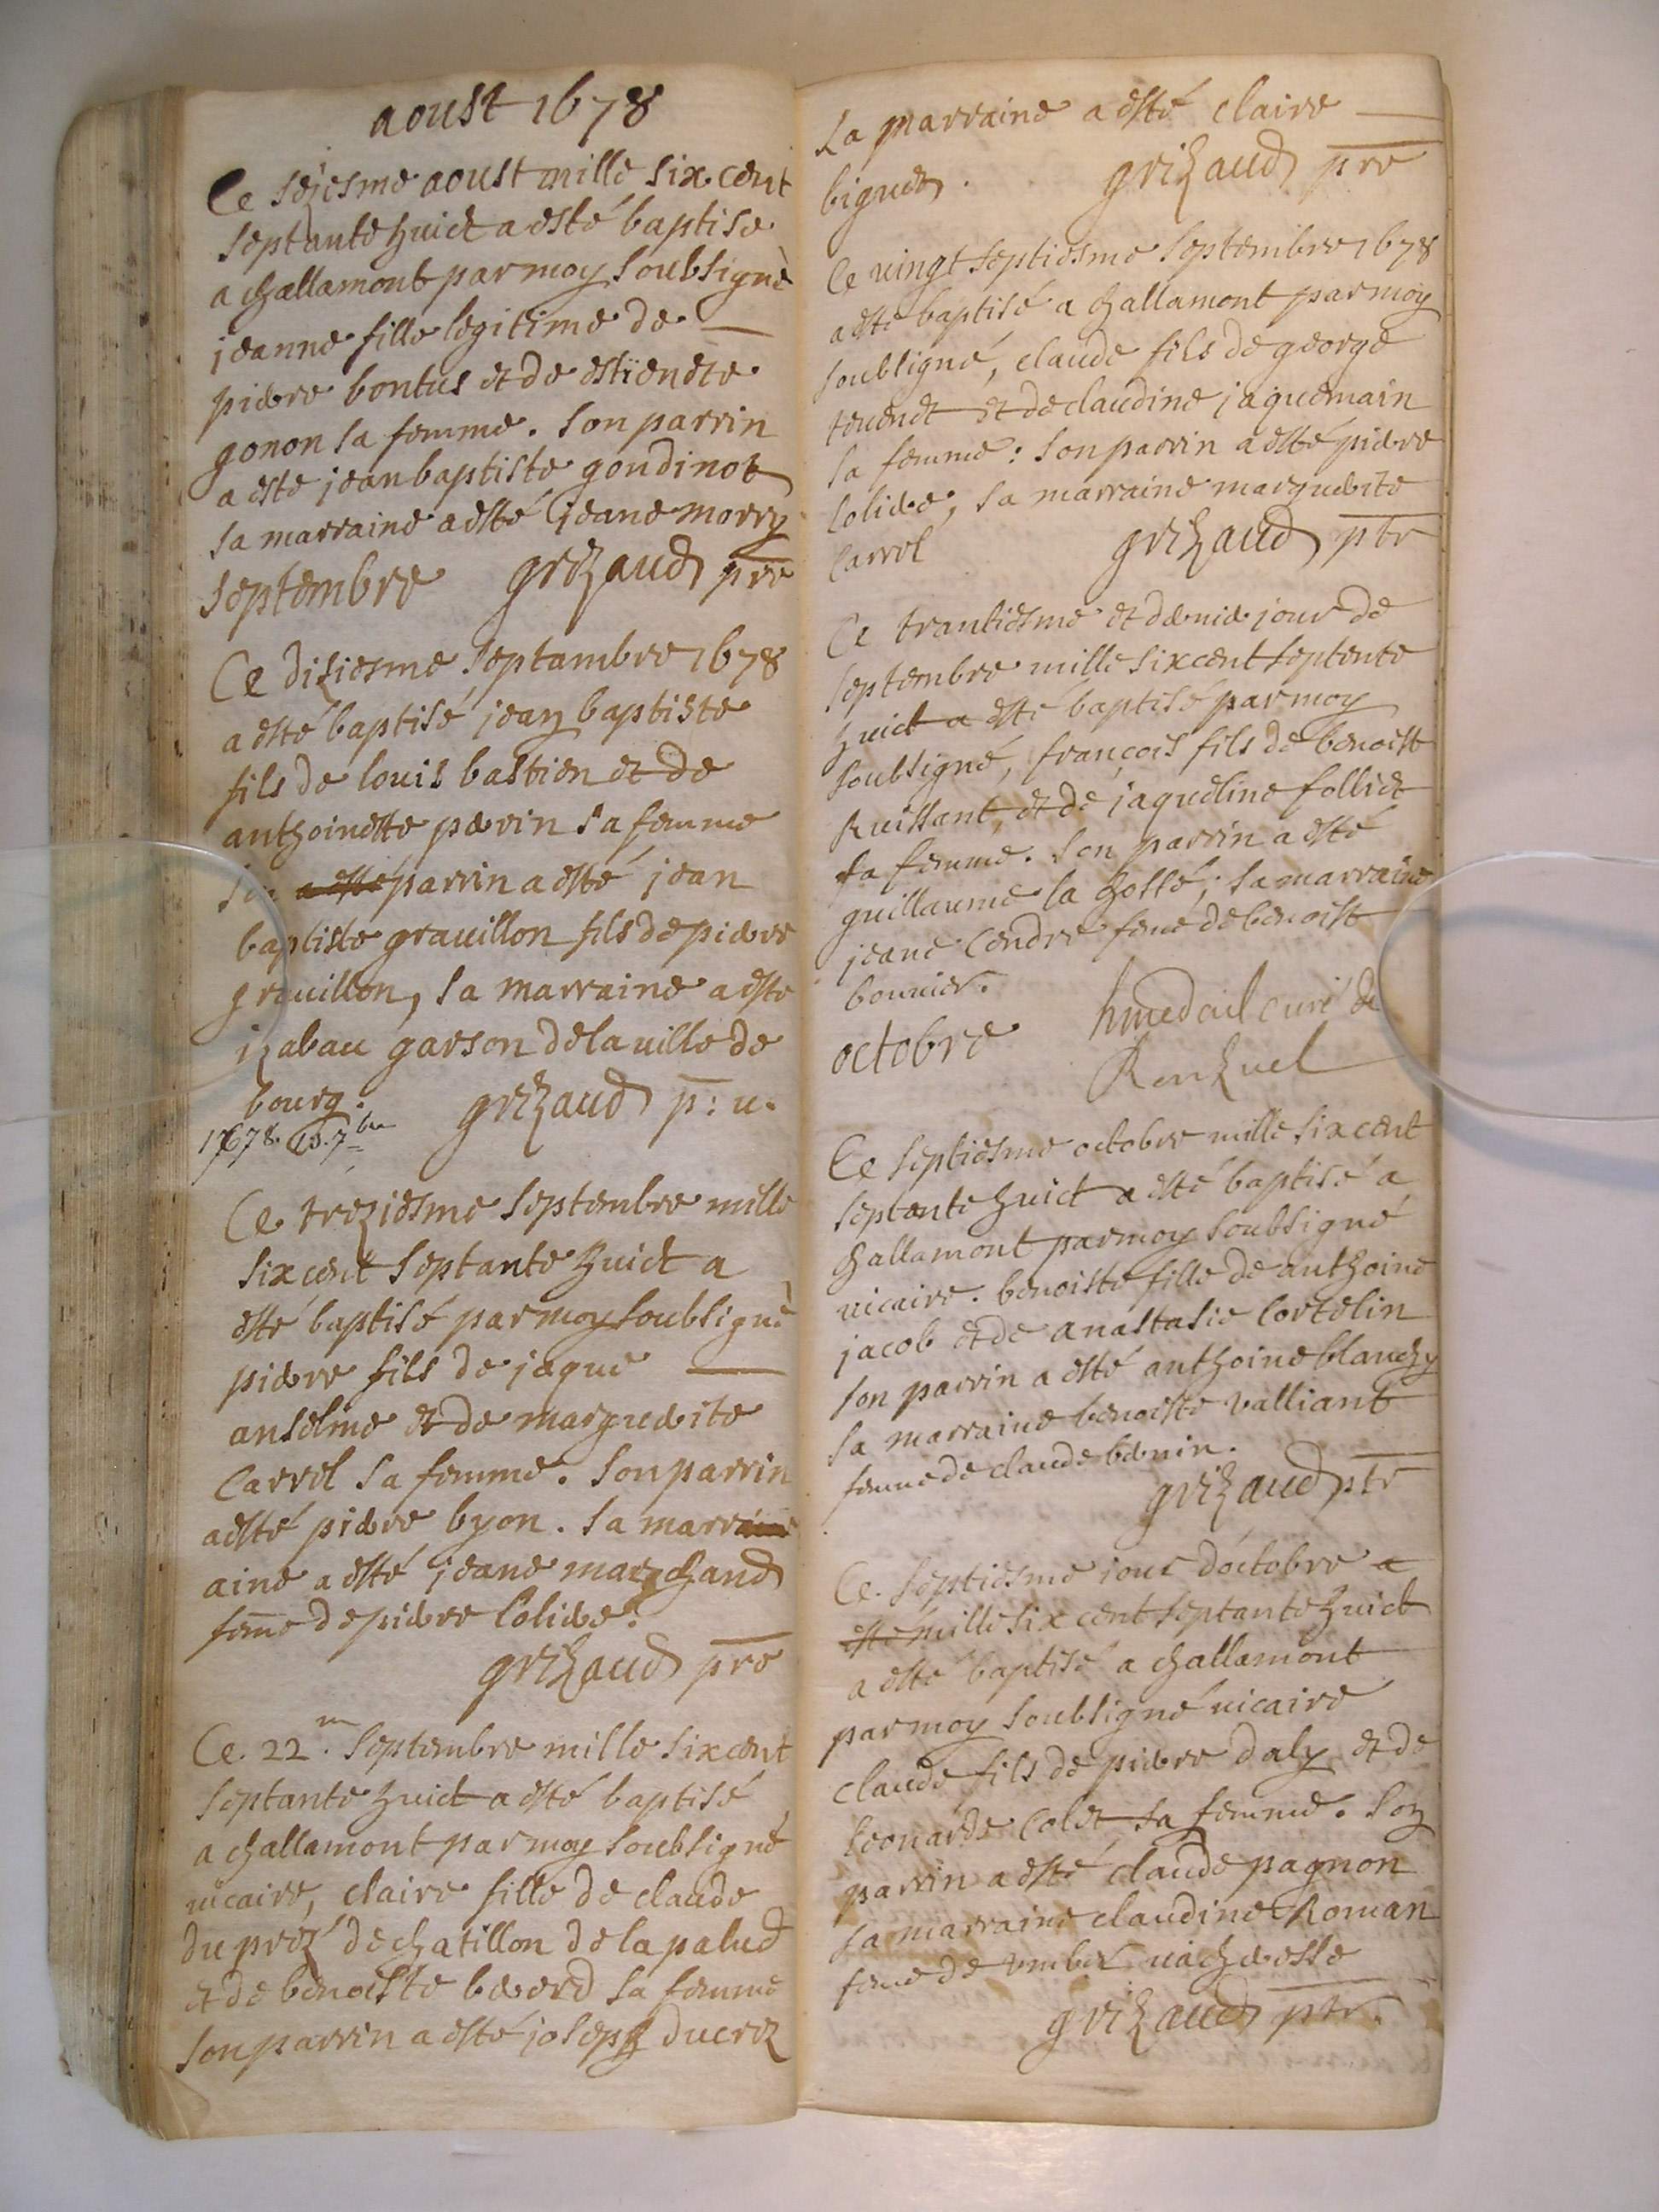 aoust 1678
Ce seziesme aoust mille six cent
septante huict a esté baptise
a challamont par moy soubsigné
jeanne fille legitime de
pierre bontus et de estiennete
gonon sa femme. Son parrin
a esté jean baptiste gondinot
sa marraine a esté jeane morry
septembre grizaud pre
Ce diziesme septambre 1678
a esté baptisé jean baptiste
fils de louis bastien et de
anthoinette perrin sa femme
son a esté parrin a esté jean
baptiste grauillon fils de pierre
grauillon, sa marraine a esté
izabau garson de la uille de
bourg. grizaud p: u.
1678. 13. 7bre
Ce treziesme septembre mille
six cent septante huict a
esté baptisé par moy soubsigné
pierre fils de jaque
anselme et de marguerite
Carrel sa femme. Son parrin
a esté pierre byon. sa marr
aine a esté jeane marchand
feme de pierre Colier.
grizaud pre
Ce. 22m. septembre mille six cent
septante huict a esté baptisé
a challamont par moy soubsigné
uicaire, claire fille de claude
du prez de chatillon de la palud
et de benoiste bererd sa femme
son parrin a esté joseph ducrez
La marraine a esté claire
biguet. grizaud pre
Ce uingt septiesme septembre 1678
a esté baptisé a challamont par moy
soubsigné, claude fils de george
teuenet et de claudine jaquemain
sa femme: son parrin a esté pierre
Colier, sa marraine marguerite
Carrel grizaud ptr
Ce trantiesme et dernier jour de
septembre mille six cent septente
huict a esté baptisé par moy
soubsigné, françois fils de benoist
Ruissant, et de jaqueline folliet
sa femme. Son parrin a esté
guillaume la hossé; sa marraine
jeane Cendre feme de benoist
bouuier.
octobre curé de
Ronzuel
Ce septiesme octobre mille six cent
septente huict a esté baptisé a
challamont par moy soubsigné
uicaire. benoiste fille de anthoine
jacob et de anastasie Cortelin
son parrin a esté anthoine blanchy
sa marraine benoiste valliant
femme de claude bernin.
grizaud ptr
Ce. septiesme jour d'octobre a
esté mille six cent septante huict
a esté baptisé a challamont
par moy soubsigné uicaire
claude fils de pierre daly et de
Leonarde Colet sa femme. Son
parrin a esté claude pagnon
sa marraine claudine Roman
feme de umber uacheresse
grizaud ptr.